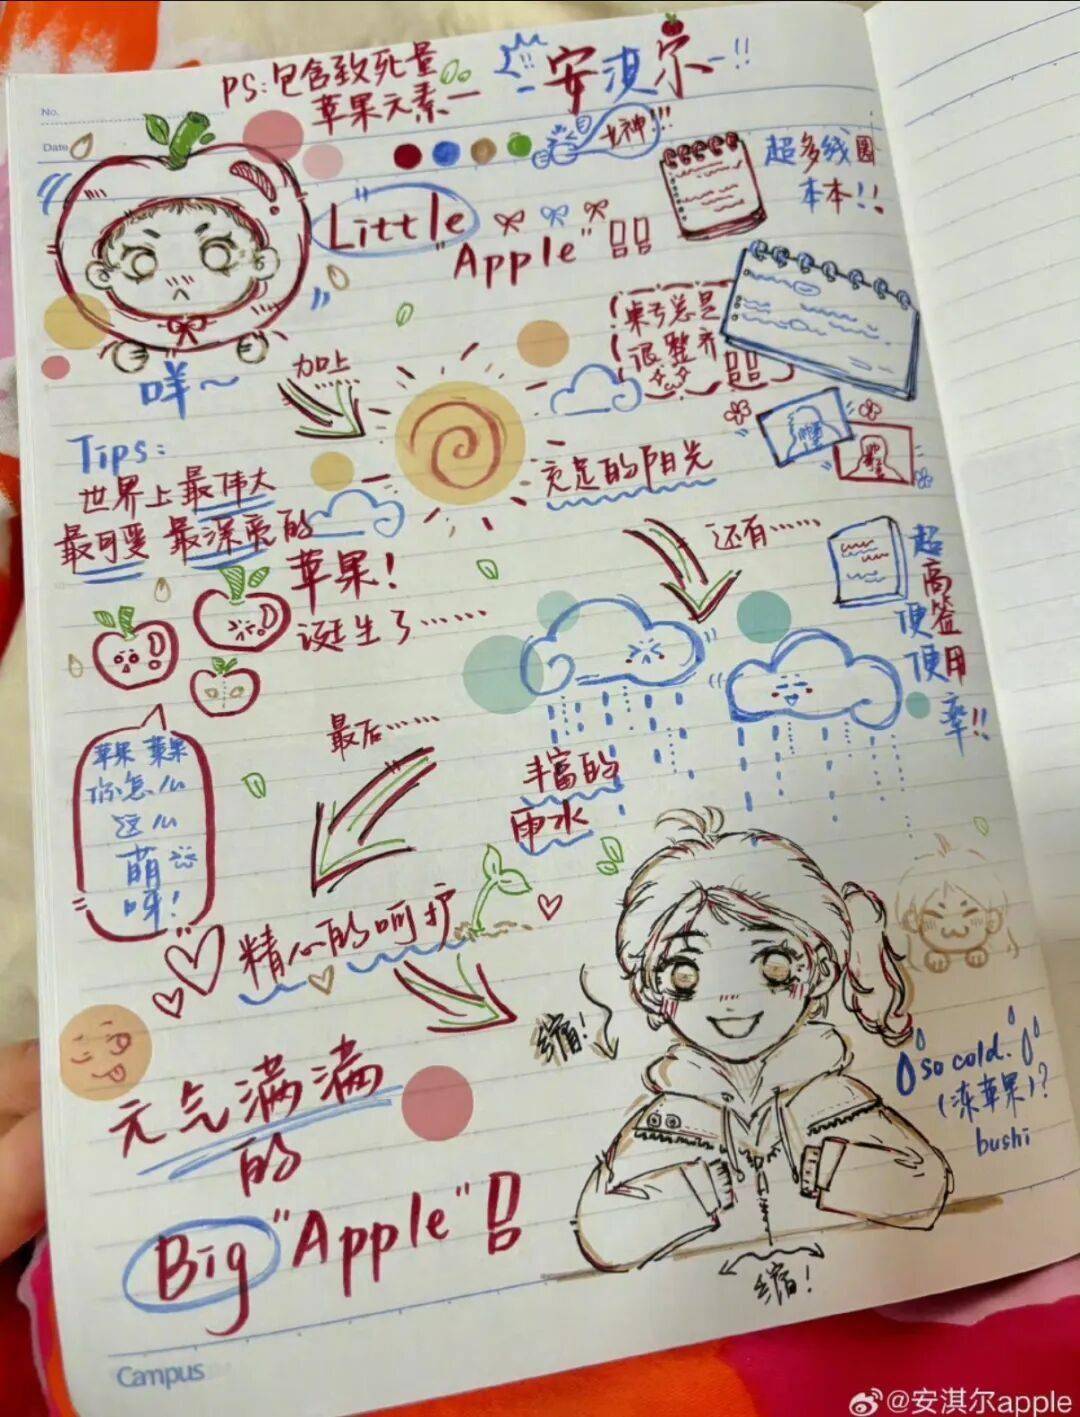 No.
Date
PS:包含致死量
苹果元素一
安淇尔
女神!!!
超多线圈
本本!!
Little
"Apple"!!
桌子总是
很整齐!!
咩~
加上
......
Tips:
世界上最伟大
最可爱 最深爱的
苹果!
诞生了......
充足的阳光
还有......
超
高
便签
使用
率!!
苹果 苹果
你怎么
这么
萌
呀!
最后......
丰富的
雨水
精心的呵护
缩!
so cold.
(冻苹果)?
bushi
元气满满
的
Big "Apple"!
缩!
Campus
@安淇尔apple